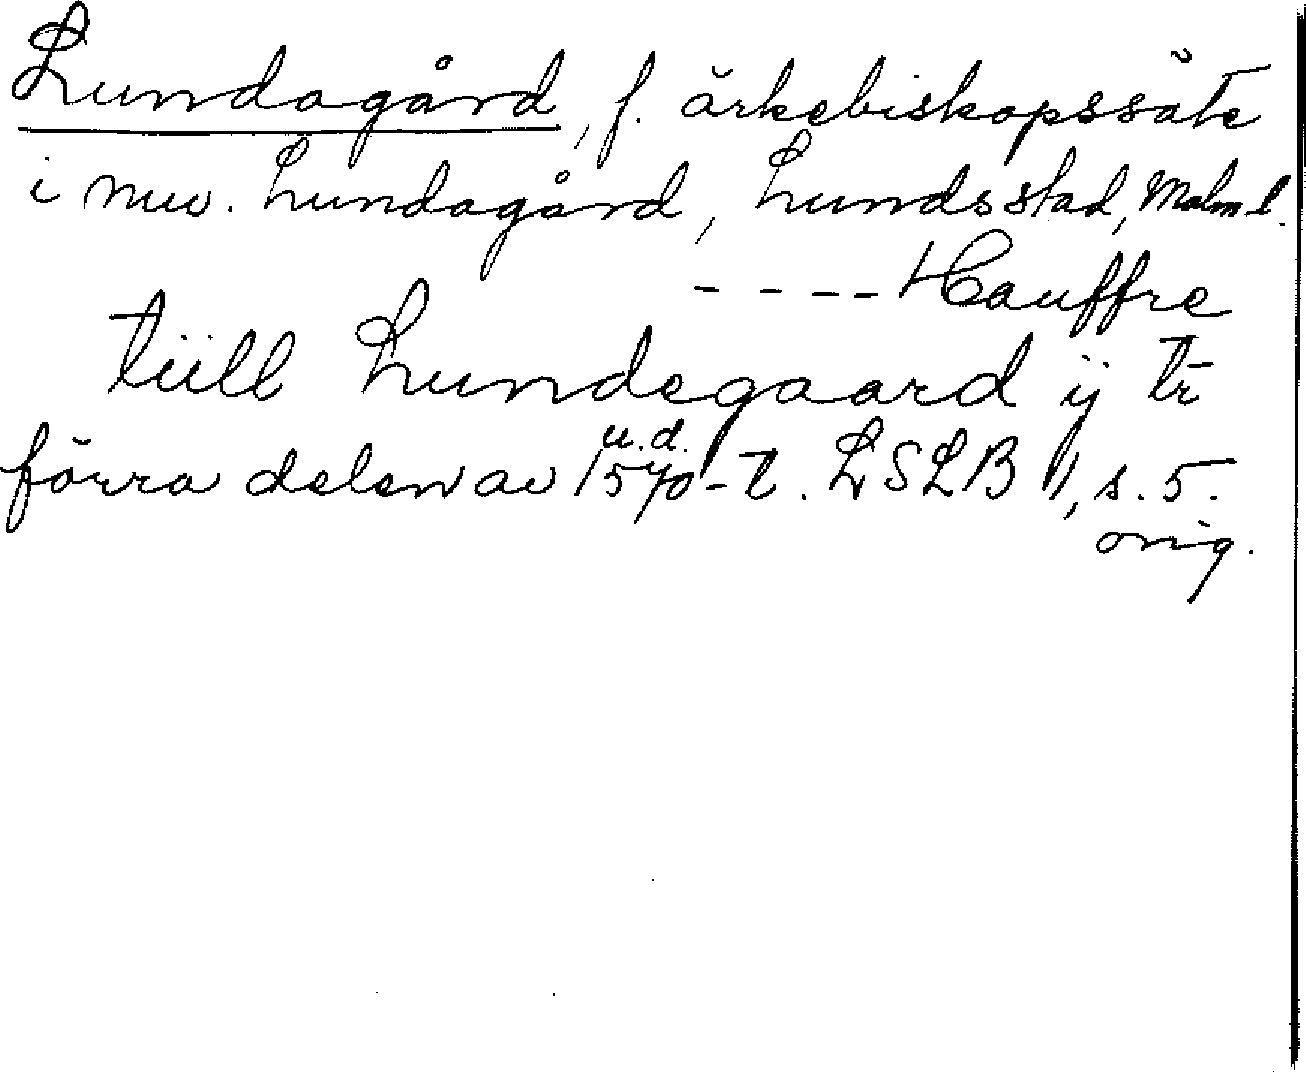 Lundagård, f. ärkebiskopssäte
i nuv. Lundagård, Lunds stad, Malm l.
- - - - Hauffre
tiill Lundegaard ij tr
u.d.
förra delen av 1570-t. LSLB 1, s. 5.
orig.